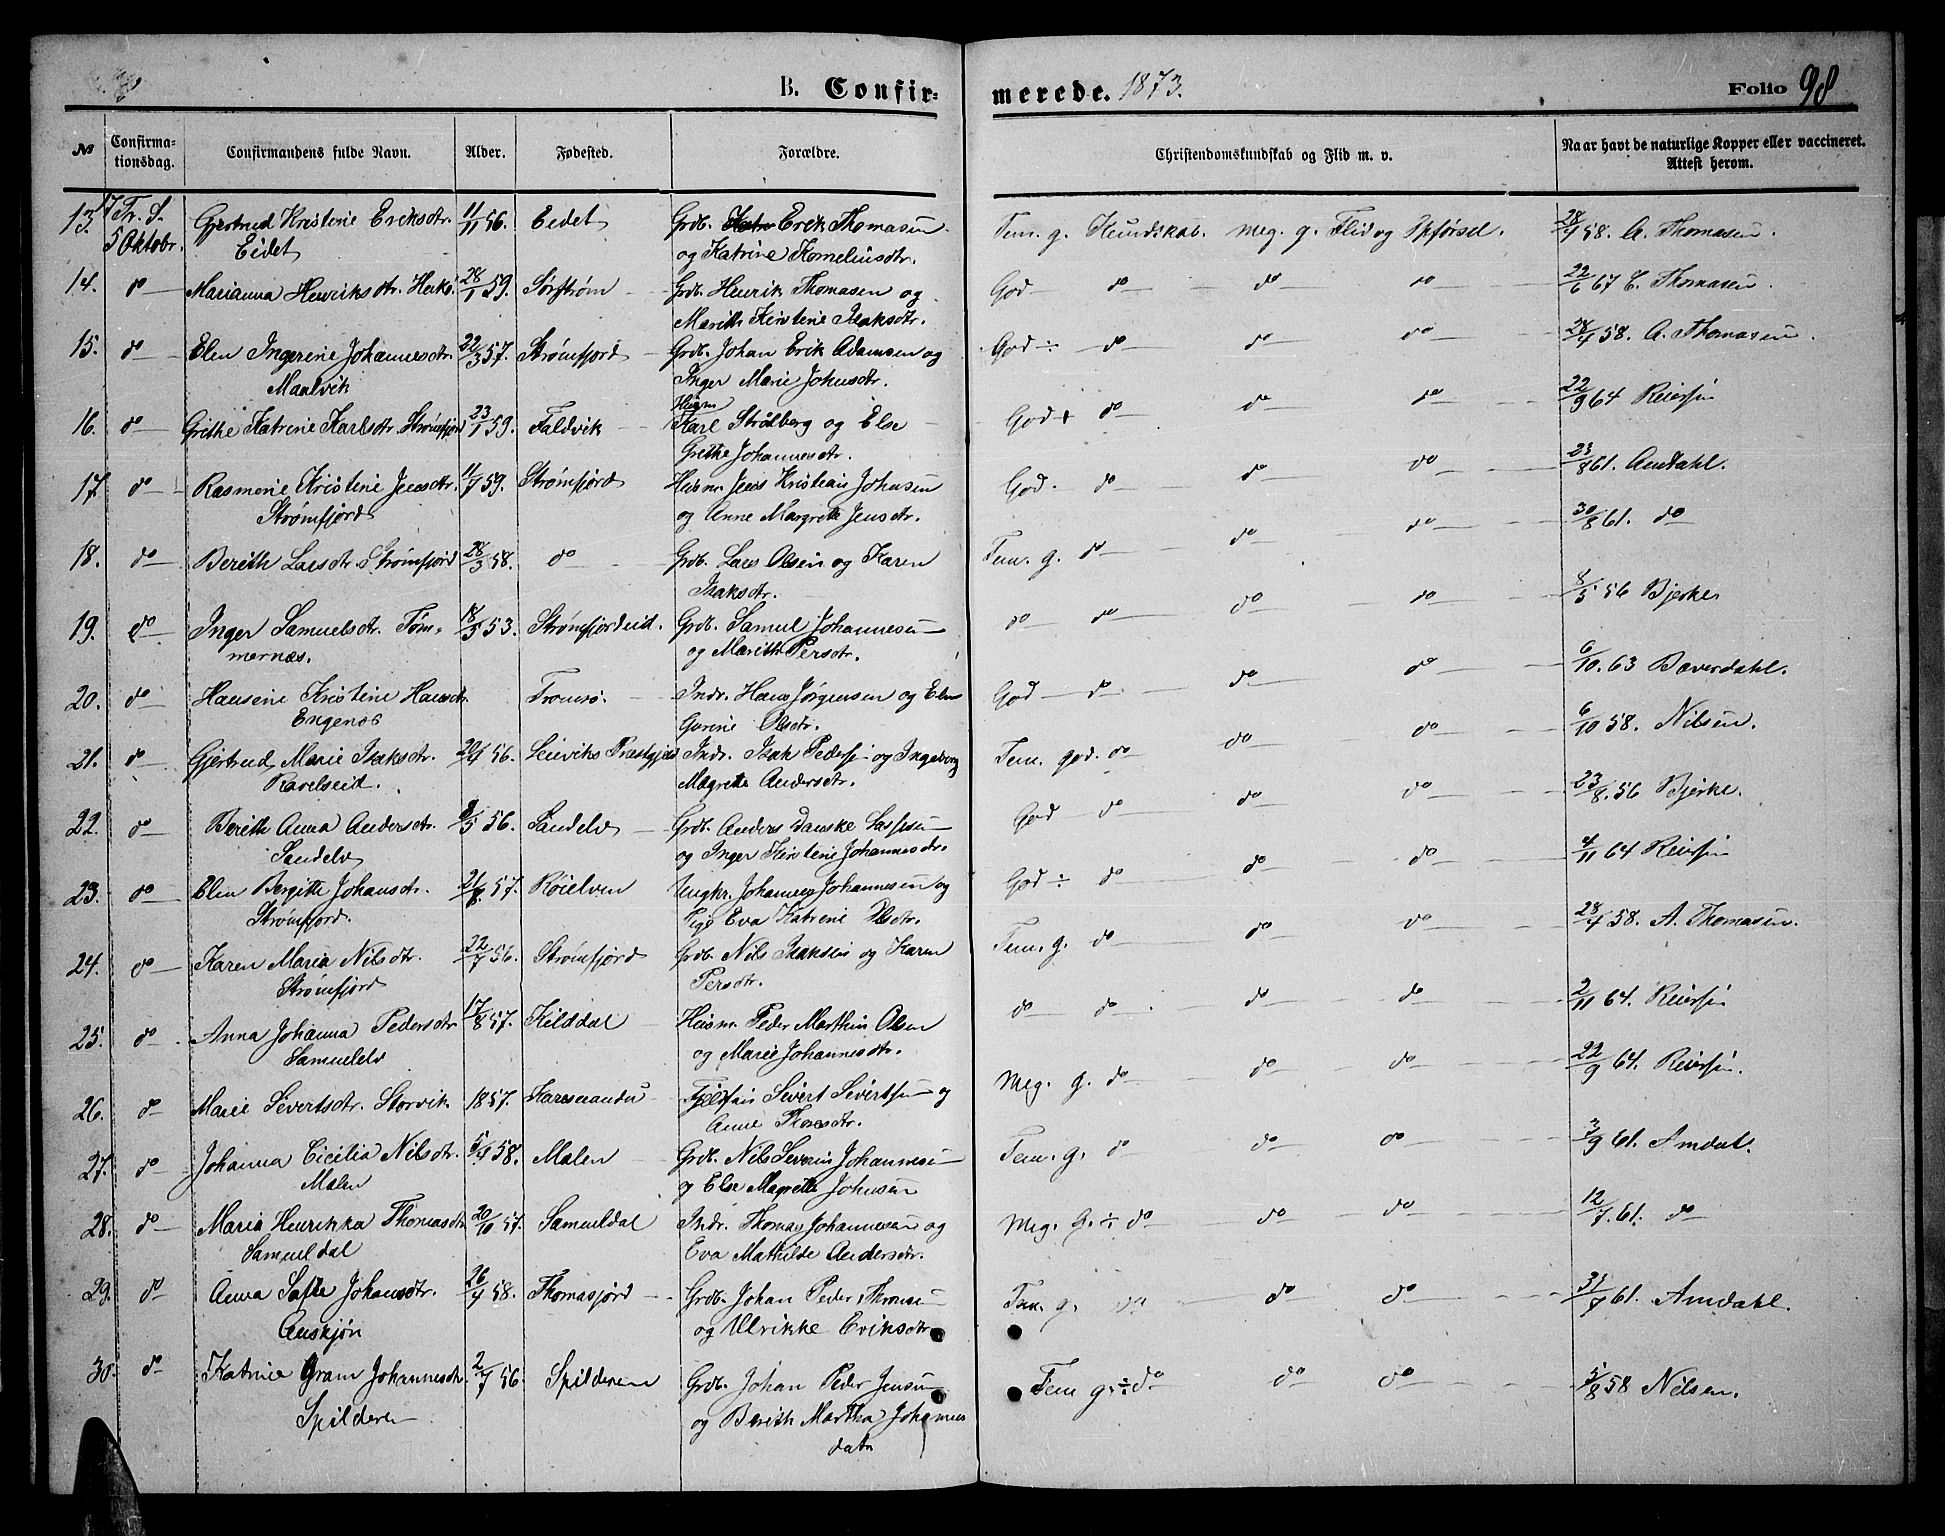 B. Confir-merede. 1873. Folio 98
No Confirmationsdag. Confirmandens fulde Navn. Alder. Fødested. Forældre. Christendomskundskab og Flid m. v. Naar havt de naturlige Kopper eller vaccineret. Attest herom.
13. 17 Tr. S. Gjertrud Kristine Eriksdtr. 11/11 56. Eidet Grdb. Erik Thomasen Tem. g. Kundskab. meg. g. Flid og Opførsel. 28/4 58. A. Thomasen.
5 Oktobr. Eidet og Katrine Korneliusdtr.
14. do Marianna Henriksdtr. 28/1 59. Sørstrøm Grdb. Henrik Thomasen og God do do do 22/6 67 E. Thomasen.
Marith Kirstine Isaksdtr.
15. do Elen Ingerine Johannesdtr. 22/3 57. Strømfjord Grdb. Johan Erik Adamsen og God ÷ do do do 28/4 58. A. Thomasen.
Maalvik Inger Marie Johnsdtr.
16. do Grithe Katrine Karlsdtr. Strømfjord 23/1 59. Faldvik Husm Karl Strålberg og Else God + do do do 22/9 64 Reiersen
Grethe Johannesdtr.
17. do Rasmine Kristine Jensdtr. 11/7 59. Strømfjord Husm. Jens Kristian Johnsen God. do do do 23/8 61. Amdahl.
Strømfjord og Anne Margrethe Jensdtr.
18. do Berith Larsdtr. Strømfjord 28/3 58. do Grdb. Lars Olsen og Karen Tem. g. do do do 30/8 61. do
Isaksdtr.
19. do Inger Samuelsdtr. Tøm- 18/5 53. Strømfjordeid. Grdb. Samul Johannesen do do do do 8/5 56 Bjerke
mernæs. og Marith Persdtr.
20. do Hansine Kristine Hansdtr. Tromsø. Indr. Hans Jørgensen og Elen God do do do 6/10. 63 Baverdahl.
Engenes Gurine Olsdtr.
21. do Gjertrud Marie Isaksdtr. 20/4 56. Leirviks Præstegjeld Indr. Isak Pedersen og Ingeborg Tem. god. do do do 6/10 58. Nilsen.
Ravelseid. Magrete Andersdtr.
22. do Berith Anna Andersdtr. 8/5 56. Sandelv Grdb. Anders Danske Lassesen God do do do 23/8. 56 Bjerke.
Sandelv og Inger Kirstine Johannesdtr.
23. do Elen Bergitte Johansdtr. 21/8 57. Røielven Ungkr. Johannes Johannesen og God ÷ do do do 4/11 64 Reiersen
Strømfjord. Pige Eva Katrine Olsdtr.
24. do Karen Maria Nilsdtr. 22/7 56. Strømfjord Grdb. Nils Isaksen og Karen Tem. g. do do do 28/4 58. A. Thomasen.
Strømfjord Persdtr.
25. do Anna Johanna Pedersdtr 17/8 57. Kilddal Husm. Peder Marthin Olsen do do do do 2/11 64. Reiersen
Samuelelv og Marie Johannesdtr.
26. do Marie Sivertsdtr. Storvik. 1857. Karesuando Fjeldfin Sivert Sivertsen og Meg. g. do do do 22/9 64. Reiersen.
Anne Thomasdtr.
27. do Johanna Cicilia Nilsdtr. 5/4 58. Malen Grdb. Nils Severin Johannesen Tem. g. do do do 3/9 61. Amdal.
Malen og Else Magrethe Johnsen
28. do Maria Henrikka Thomasdtr 20/10 57. Samueldal Indr. Thomas Johannesen og Meg. g. ÷ do do do 12/7. 61. do
Samueldal Eva Mathilde Andersdtr.
29. do Anna Sofie Johansdtr. 26/4 58. Thomasjord Grdb. Johan Peder Thomsen Tem. g. do do do 31/7 61. Amdahl.
Anskjøn og Ulrikke Eriksdtr
30. do Katrine Gram Johannesdtr 2/7 56. Spilderen Grdb. Johan Peder Jensen Tem g. ÷ do do do 5/8 58 Nilsen.
Spilderen og Berith Martha Johannes
datr